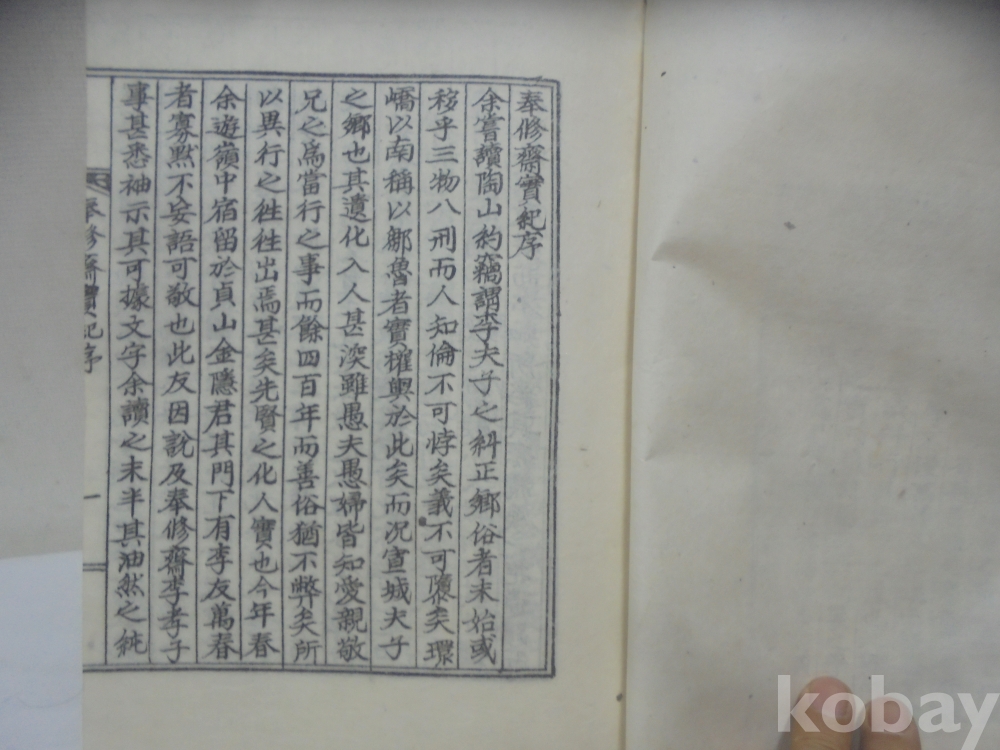 奉修齋實紀序
余嘗讀陶山約竊謂李夫子之糾正鄉俗者未始或
移乎三物八刑而人知倫不可悖矣義不可隳矣環
嶠以南稱以鄒魯者實權輿於此矣而況宣城夫子
之鄉也其遺化入人甚深雖愚夫愚婦皆知愛親敬
兄之爲當行之事而餘四百年而善俗猶不弊矣所
以異行之徃徃出焉甚矣先賢之化人實也今年春
余遊嶺中宿留於貞山金隱君其門下有李友萬春
者寡黙不妄語可敬也此友因說及奉修齋李孝子
事甚悉袖示其可據文字余讀之未半其油然之純
奉修齋實紀序
一
kobay